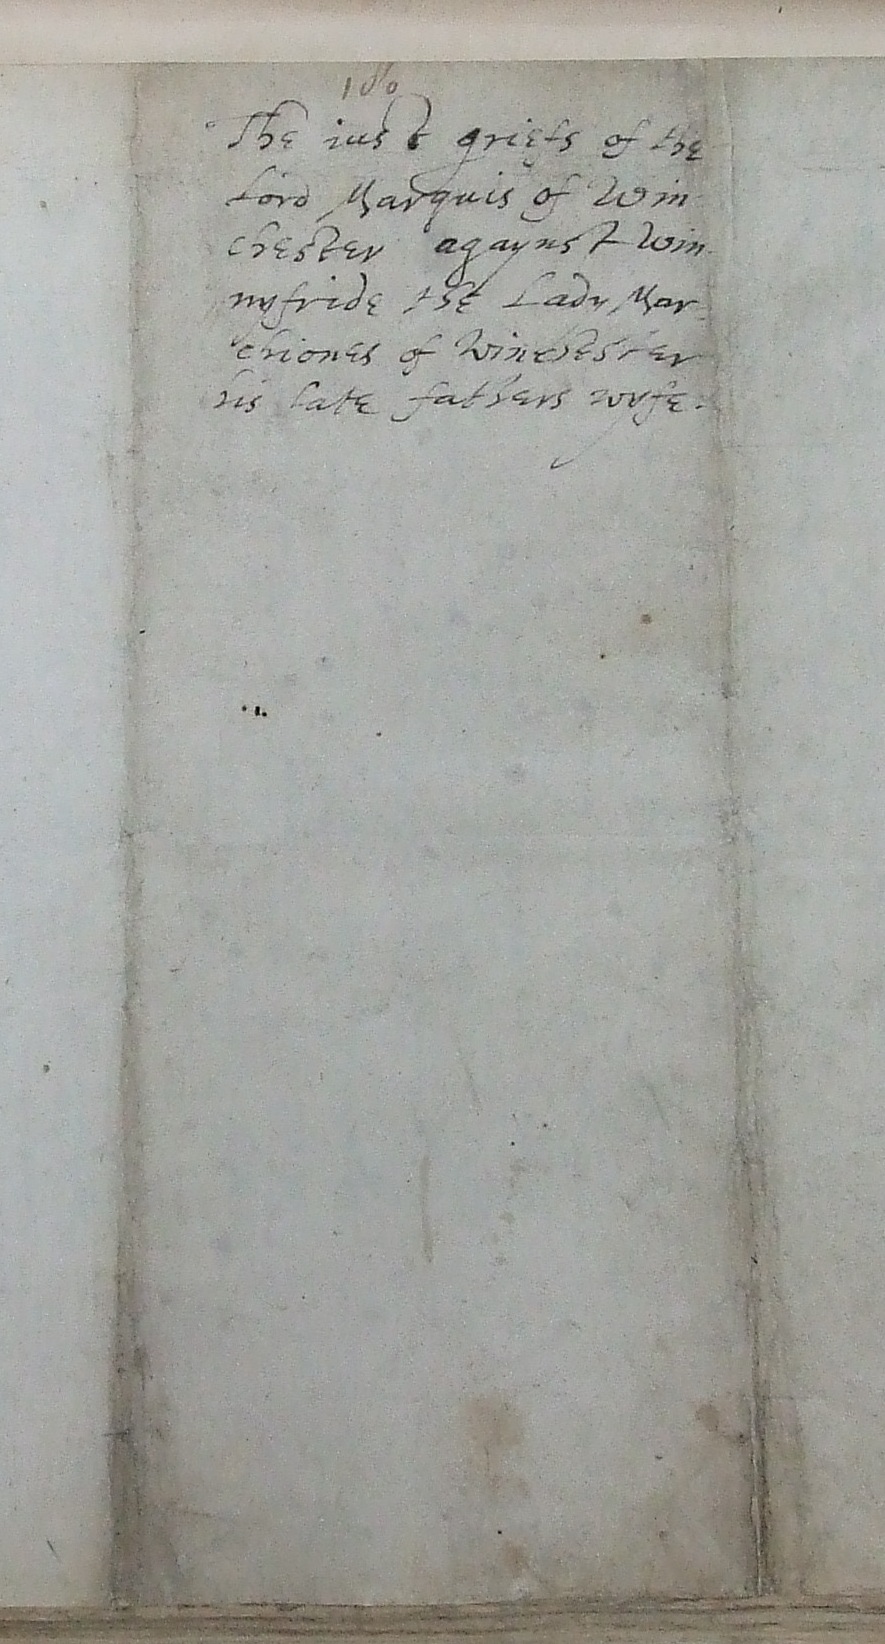 The iust griefs of the
Lord Marquis of Win
chester agaynst Win
nyfride the Lady Mar
chiones of Winchester
his late fathers wyfe.